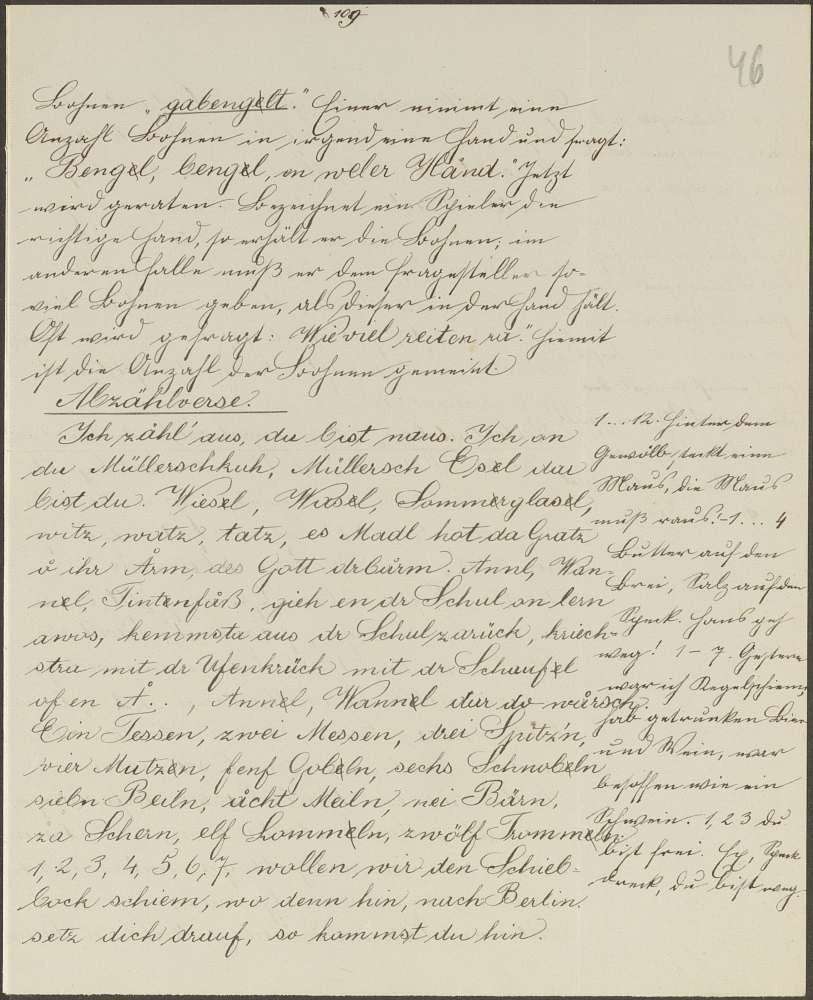 109
46
Bohnen „gabengelt." Einer nimmt eine
Anzahl Bohnen in irgend eine Hand und fragt:
„Bengel, bengel, en weler Hånd." Jetzt
wird geraten. Bezeichnet ein Spieler die
richtige Hand, so erhält er die Bohnen; im
anderen Falle muß er dem Fragesteller so-
viel Bohnen geben, als dieser in der Hand hält.
Oft wird gefragt: Wieviel reiten ra." Hiemit
ist die Anzahl der Bohnen gemeint.
Abzählverse.
Ich zähl' aus, du bist naus. Ich, on
du Müllerschkuh, Müllersch Esel dar
bist du. Wiesel, Wasel, Sommerglasel,
witz, watz, tatz, es Madl hot da Gratz
å ihr Årm, des Gott drbårm. Annl, Wan-
nel, Tintenfåß, gieh en dr Schul on lern
awos, kemmsta aus dr Schul zarück, kriech-
stra mit dr Ufenkrück mit dr Schaufel
of en A. . , Annel, Wannel dur do wårsch.
Ein Tessen, zwei Messen, drei Spitz'n,
vier Mutzen, fenf Gobeln, sechs Schnobeln
siebn Beiln, åcht Meiln, nei Bärn,
za Schern, elf Lommeln, zwölf Trommeln.
1, 2, 3, 4, 5, 6, 7, wollen wir den Schieb-
bock schiem, wo denn hin, nach Berlin.
setz dich drauf, so kommst du hin.
1 . . . 12. Hinter dem
Gewölb steckt eine
Maus, die Maus
muß raus! – 1 . . . 4
Butter auf den
Brei, Salz auf den
Speck. Hans geh
weg! 1 – 7. Gestern
war ich Regelschiem,
hab getrunken Bier
und Wein, war
besoffen wie ein
Schwein. 1, 2 3 du
bist frei. Ex, Speck
dreck, du bist weg.